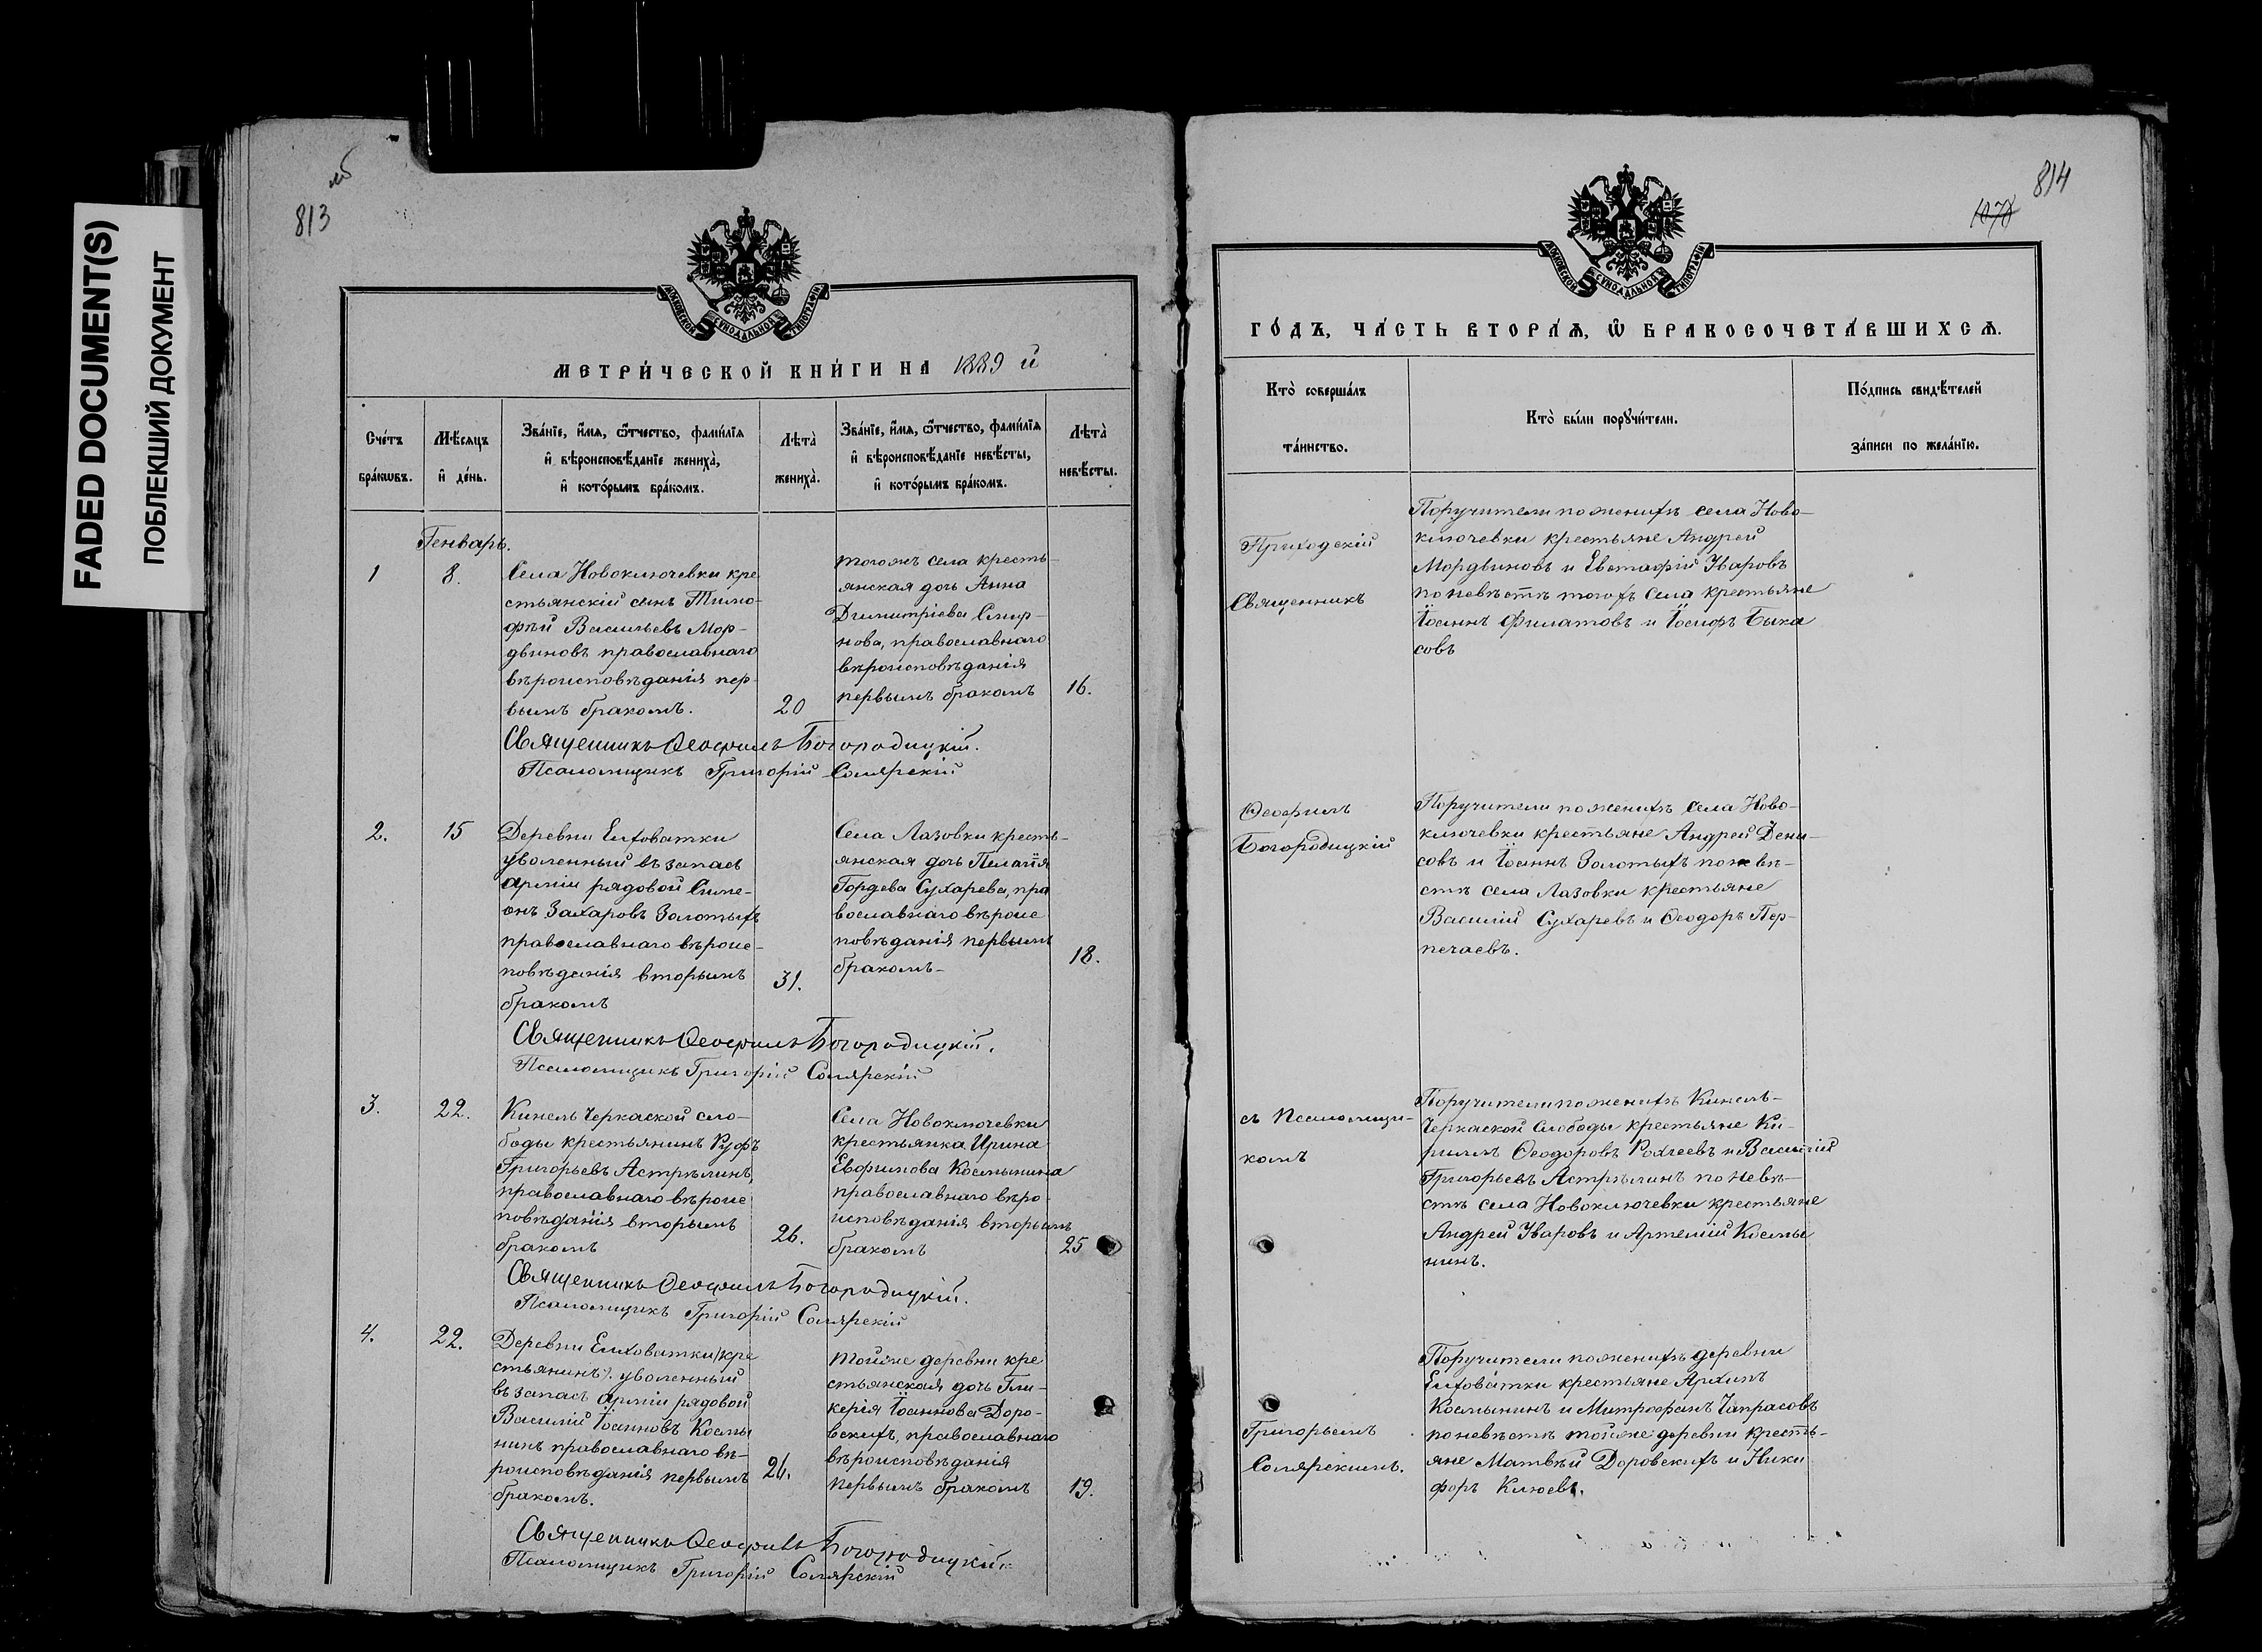 FADED DOCUMENT(S)
ПОБЛЕКШИЙ ДОКУМЕНТ
813
МОСКОВСКОЙ СѴНОДАЛЬНОЙ ТИПОГРАФІИ
МЕТРИ́ЧЕСКОЙ КНИ́ГИ НА 1889 й
Сче́тъ
бра́кѡвъ.
Мѣ́сяцъ
и҆ де́нь.
Зва́нїе, и҆́мя, ѻ҆́тчество, фами́лїя
и҆ вѣроисповѣ́данїе жениха̀,
и҆ кото́рымъ бра́комъ.
Лѣта̀
жениха̀.
Зва́нїе, и҆́мя, ѻ҆́тчество, фами́лїя
и҆ вѣроисповѣ́данїе невѣ́сты,
и҆ кото́рымъ бра́комъ.
Лѣта̀
невѣ́сты.
Генварь.
1
8.
Села Новоключевки кре
стьянскій сынъ Тимо-
фѣй Васильевъ Мор-
двиновъ православнаго
вѣроисповѣданія пер-
вымъ бракомъ.
20
тогожъ села кресть-
янская дочь Анна
Димитріева Смир-
нова, православнаго
вѣроисповѣданія
первымъ бракомъ
16.
Священникъ Ѳеофилъ Богородицкій.
Псаломщикъ Григорій Солярскій
2.
15
Деревни Елховатки
уволенный въ запасъ
арміи рядовой Симе-
онъ Захаровъ Золотыхъ
православнаго вѣроис-
повѣданія вторымъ
бракомъ
31.
Села Лазовки кресть-
янская дочь Пелагія
Гордева Сухарева, пра
вославнаго вѣроис
повѣданія первымъ
бракомъ-
18.
Священникъ Ѳеофилъ Богородицкій.
Псаломщикъ Григорій Солярскій
3.
22.
Кинель Черкаской сло-
боды крестьянинъ Руфъ
Григорьевъ Астрѣлинъ,
православнаго вѣроис
повѣданія вторымъ
бракомъ
26.
Села Новоключевки
крестьянка Ирина
Евфимова Космынина
православнаго вѣро-
исповѣданія вторымъ
бракомъ
25
Священникъ Ѳеофилъ Богородицкій.
Псаломщикъ Григорій Солярскій
4.
22.
Деревни Елховатки /кре
стьянинъ/. уволенный
въ запасъ арміи рядовой
Василій Іоанновъ Космы
нинъ православнаго вѣ-
роисповѣданія первымъ
бракомъ.
26.
тойже деревни кре
стьянская дочь Гли-
керія Іоаннова Доро-
вскихъ, православнаго
вѣроисповѣданія
первымъ бракомъ
19.
Священникъ Ѳеофилъ Богородицкій.
Псаломщикъ Григорій Солярскій
814
1070
МОСКОВСКОЙ СѴНОДАЛЬНОЙ ТИПОГРАФІИ
ГО́ДЪ, ЧА́СТЬ ВТОРА́Ѧ, Ѽ БРАКОСОЧЕТА́ВШИХСѦ.
Кто̀ соверша́лъ
та́инство.
Кто̀ бы́ли порꙋчи́тели.
По́дпись свидѣ́телей
за́писи по жела́нїю.
Приходскій
Священникъ
Поручители по женихѣ села Ново-
ключевки крестьяне Андрей
Мордвиновъ и Евстафій Уваровъ
по невѣстѣ тогожъ села крестьяне
Іоаннъ Филатовъ и Іосифъ Быка
совъ
Ѳеофилъ
Богородицкій
Поручители по женихѣ села Ново-
ключевки крестьяне Андрей Дени-
совъ и Іоаннъ Золотыхъ по невѣ-
стѣ села Лазовки крестьяне
Василій Сухаревъ и Ѳеодоръ Пер-
печаевъ.
съ Псаломщи-
комъ
Поручители по женихѣ Кинель-
Черкаской слободы крестьяне Ки-
риллъ Ѳеодоровъ Рохлеевъ и Василій
Григорьевъ Астрѣлинъ по невѣ-
стѣ села Новоключевки крестьяне
Андрей Уваровъ и Артемій Космы
нинъ.
Григорьемъ
Солярскимъ.
Поручители по женихѣ деревни
Елховатки крестьяне Архипъ
Космынинъ и Митрофанъ Чапрасовъ
по невѣстѣ тойже деревни кресть-
яне Матвѣй Доровскихъ и Ники
форъ Клюевъ.